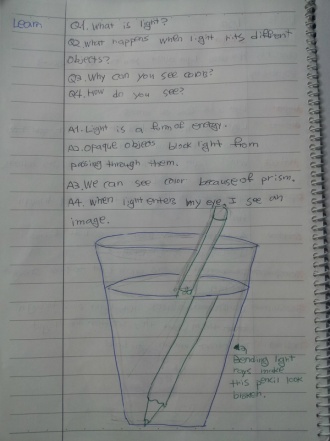 Learn
Q1. What is light?
Q2. What happens when light hits different
objects?
Q3. Why can you see colors?
Q4. How do you see?
A1. Light is a form of energy.
A2. Opaque objects block light from
passing through them.
A3. We can see color because of prism.
A4. When light enters my eye, I see an
image.
Bending light
rays make
this pencil look
broken.